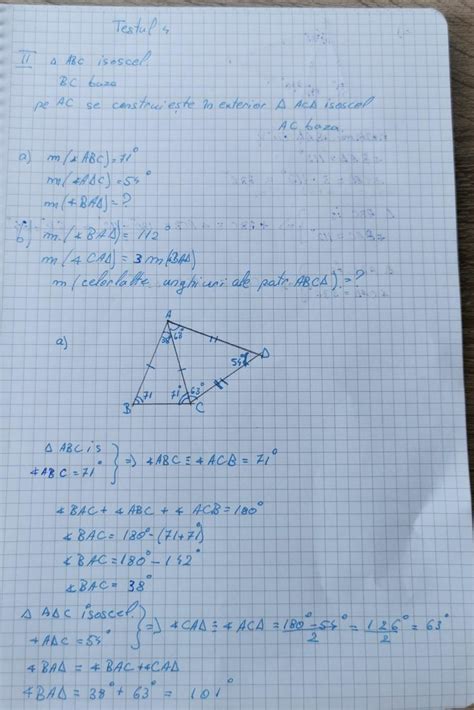 Testul 4
II Δ ABC isoscel
BC baza
pe AC se construiește în exterior Δ ACD isoscel
AC baza.
a) m(∢ABC)=71°
m(∢ADC)=54°
m(∢BAD)=?
b) m(∢BAD)=112°
m(∢CAD)=3m(BAD)
m(celorlalte unghiuri ale patr. ABCD)=?
a)
A
38° 68°
54° D
B 71 71° 63° C
Δ ABC is
∢ABC=71° } => ∢ABC ≡ ∢ACB = 71°
∢BAC + ∢ABC + ∢ACB = 180°
∢BAC = 180° - (71+71)°
∢BAC = 180° - 142°
∢BAC = 38°
Δ ADC isoscel.
∢ADC=54° } => ∢CAD ≡ ∢ACD = 180°-54°/2 = 126°/2 = 63°
∢BAD = ∢BAC + ∢CAD
∢BAD = 38° + 63° = 101°